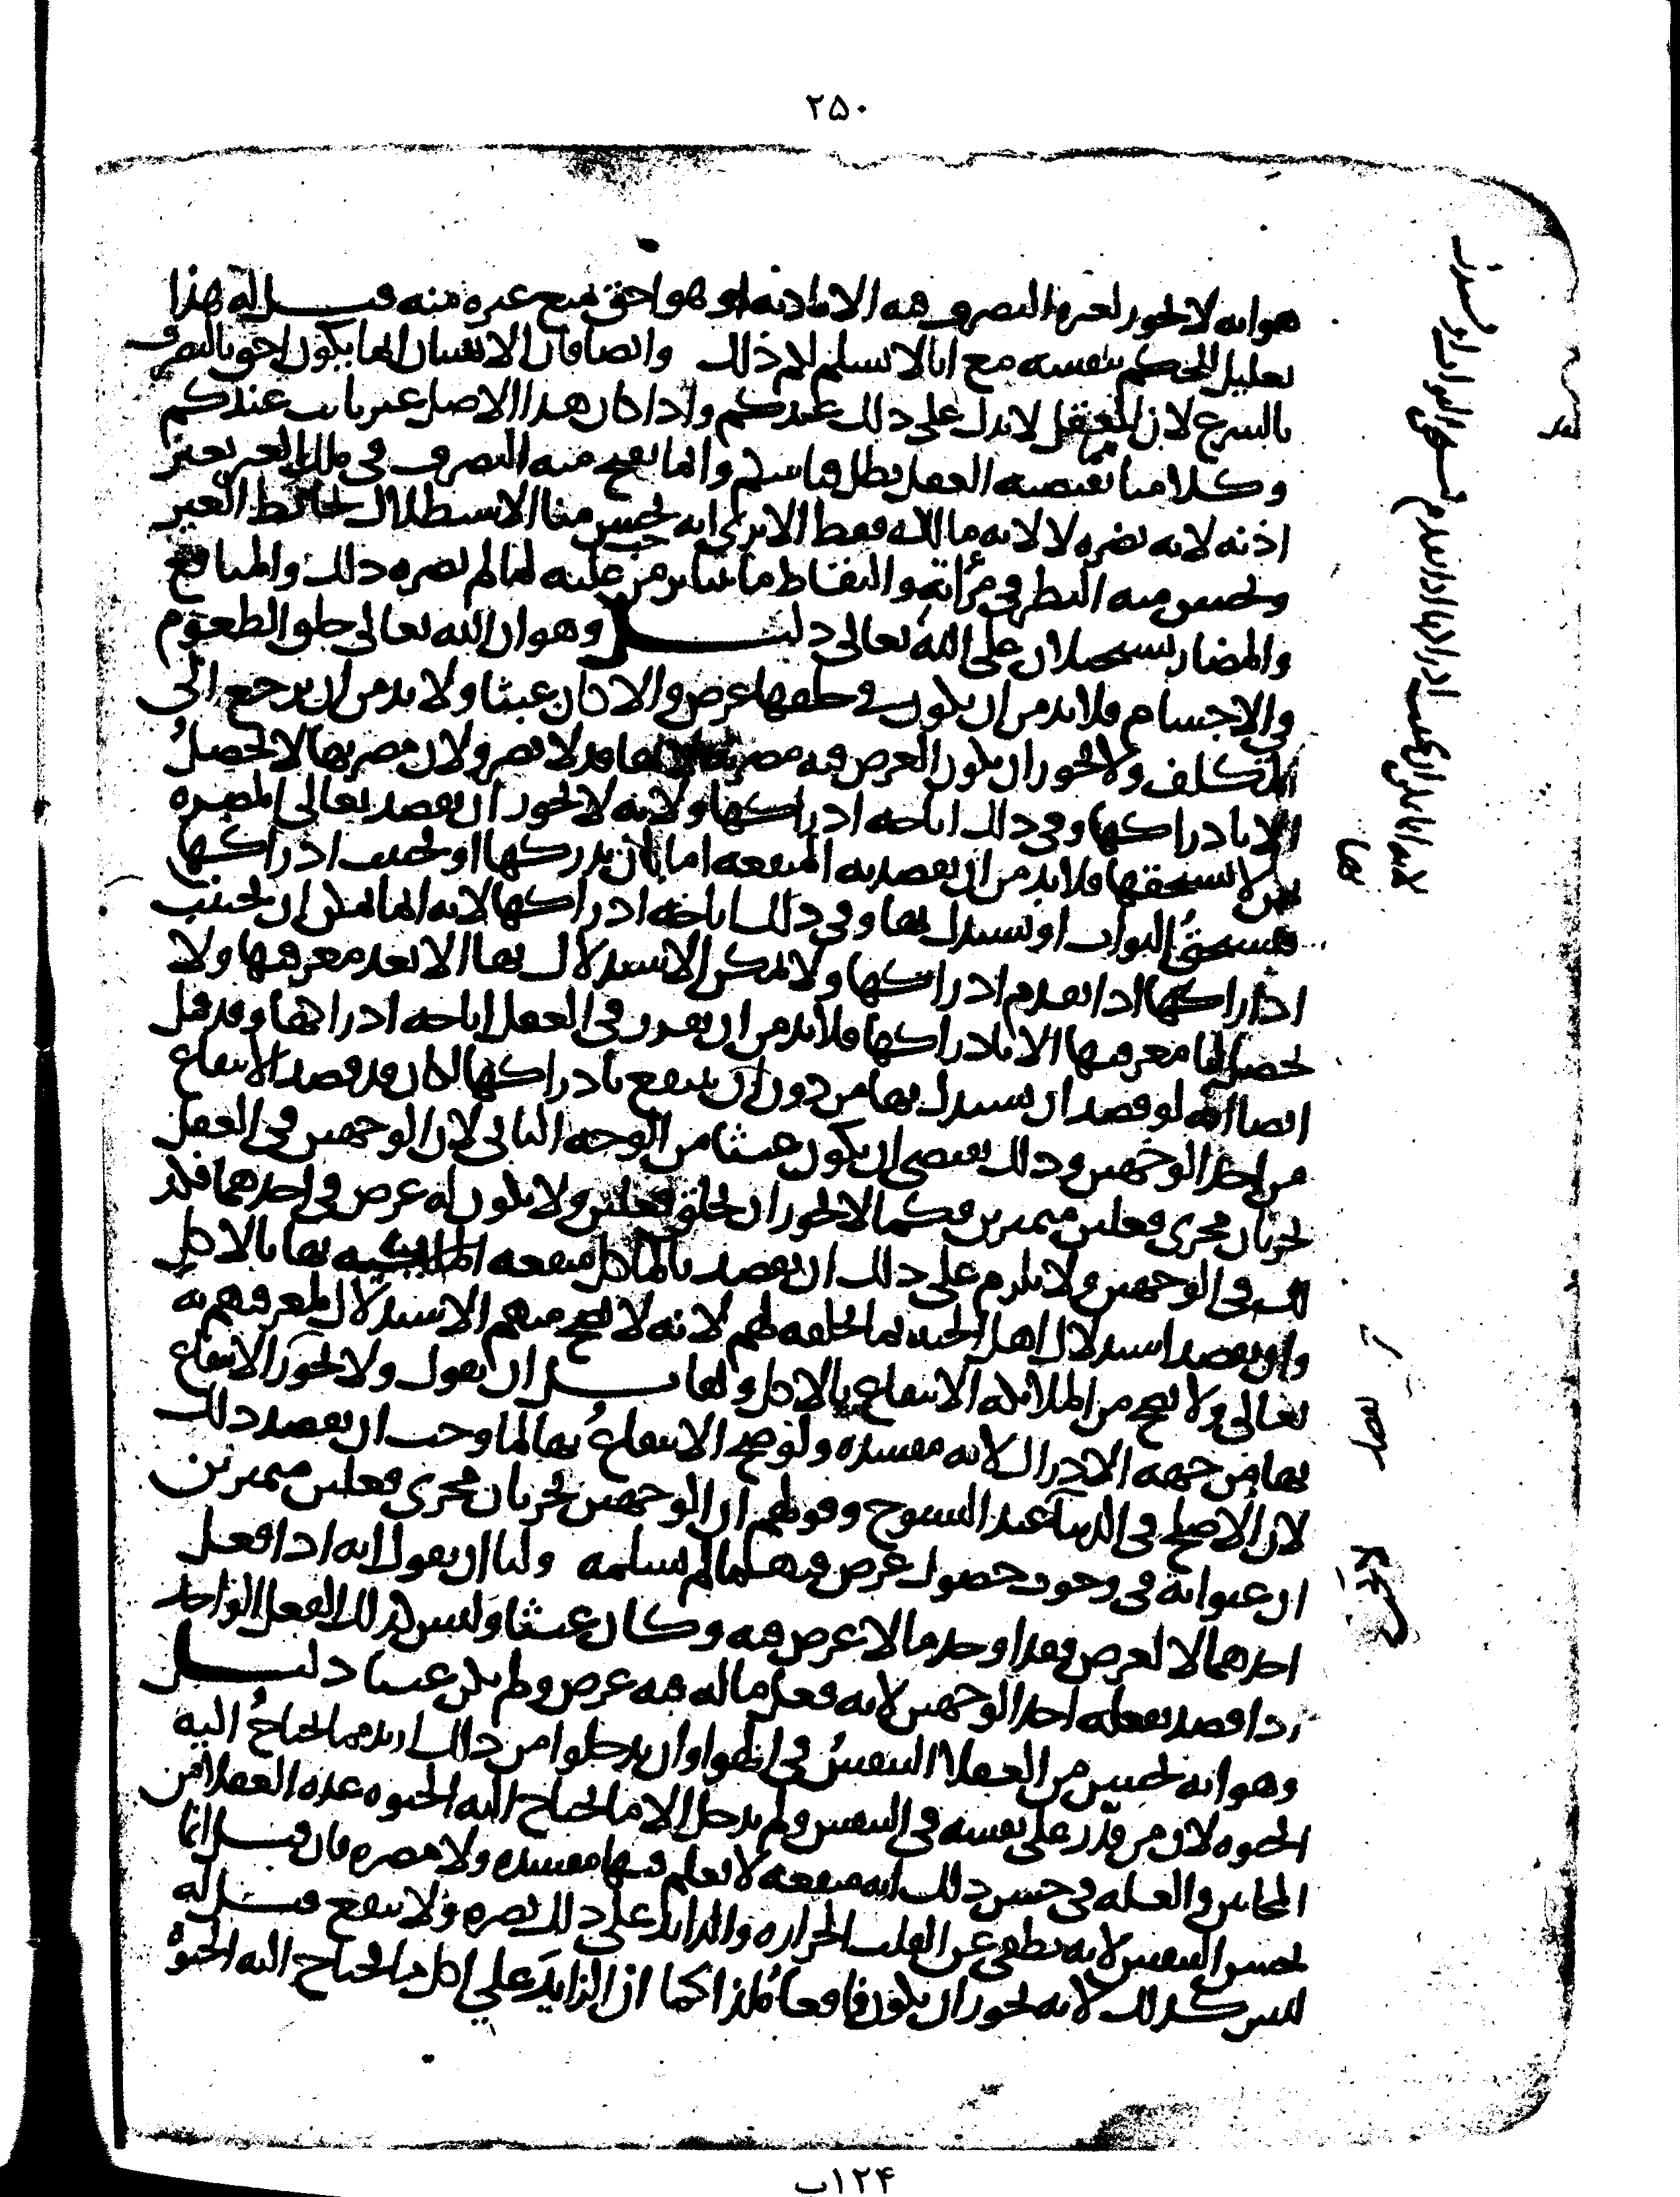 ٢۵٠
هو انه لا يجوز لغيره التصرف فيه الا باذنه او هو احق بمنع غيره منه قيل له هذا
تعليل الحكم بنفسه مع انا لا نسلم لكم ذلك وايضا فان الانسان انما يكون احق بالتصرف
بالشرع لان العقل لا يدل على ذلك عندكم واذا كان هذا الاصل غير ثابت عندكم
وكلامنا يقتضيه العقل بطل قياسكم وانما يقبح منه التصرف في ملك الغير بغير
اذنه لانه يضره لا لانه مالكه فقط الا ترى انه يحسن منا الاستظلال بحائط الغير
ويحسن منه النظر في مرآته والتقاط ما تناثر من حب غلته لما لم يضره ذلك والمنافع
والمضار تستحيلان على الله تعالى دليل وهو ان الله تعالى خلق الطعوم
في الاجسام فلا بد من ان يكون في خلقها غرض والا كان عبثا ولا بد من ان يرجع الى
المكلف ولا يجوز ان يكون الغرض فيه مضرته لانها قد لا تضر ولان مضرتها لا تحصل
الا بادراكها وفي ذلك اباحه ادراكها ولانه لا يجوز ان يقصد تعالى المضره
لمن لا يستحقها فلا بد من ان يقصد به المنفعه اما بان يدركها او يجتنب ادراكها
فيستحق الثواب او يستدل بها وفي ذلك اباحه ادراكها لانه انما يمكن ان يجتنب
ادراكها اذا تقدم ادراكها ولا يمكن الاستدلال بها الا بعد معرفتها ولا
يحصل لنا معرفتها الا بادراكها فلا بد من ان يقرر في العقل اباحه ادراكها وقد قيل
ايضا انه لو قصد ان يستدل بها من دون ان ينتفع بادراكها لكان قد قصد الانتفاع
من احد الوجهين وذلك يقتضي ان يكون عبثا من الوجه الثاني لان الوجهين في العقل
يجريان مجرى فعلين متميزين فكما لا يجوز ان يخلق فعلين ولا يكون له غرض في احدهما فكذ
لك في الوجهين ولا يلزم على ذلك ان يقصد بالماكل منفعه الملائكه بها بالاكل
وان يقصد استدلال اهل الجنه بما يخلقه لهم لانه لا يصح منهم الاستدلال لمعرفتهم به
تعالى ولا يصح من الملائكه الانتفاع بالاكل ولقائل ان يقول ولا يجوز الانتفاع
بها من جهه الادراك لانه مفسده ولو صح الانتفاع بها لما وجب ان يقصد ذلك
لان الاصلح في الدنيا عند الشيوخ وقولهم ان الوجهين يجريان مجرى فعلين متميزين
ان عنوا به في وجوب حصول غرض فيهما لم نسلمه ولنا ان نقول انه اذا فعل
احدهما لا لغرض فقد اوجد ما لا غرض فيه وكان عبثا وليس كذلك الفعل الواحد
اذا قصد بفعله احد الوجهين لانه فعل ما له فيه غرض ولم يكن عبثا دليل
وهو انه يحسن من العقلا التنفس في الهوا وان يدخلوا من ذلك ازيد مما يحتاج اليه
الحيوه لان من قدر على نفسه في التنفس ولم يدخل الا ما يحتاج اليه الحيوه عده العقلا من
المجانين والعله في حسن ذلك انه منفعه لا نعلم فيها مفسده ولا مضره فان قيل انما
يحسن التنفس لانه يطفى عن القلب الحراره والزايد على ذلك يضره ولا ينفع قيل له
ليس كذلك لانه يجوز ان يكون نافعا ملذا كما ان الزايد على اكل ما يحتاج اليه الحيوة
١٢۴ب